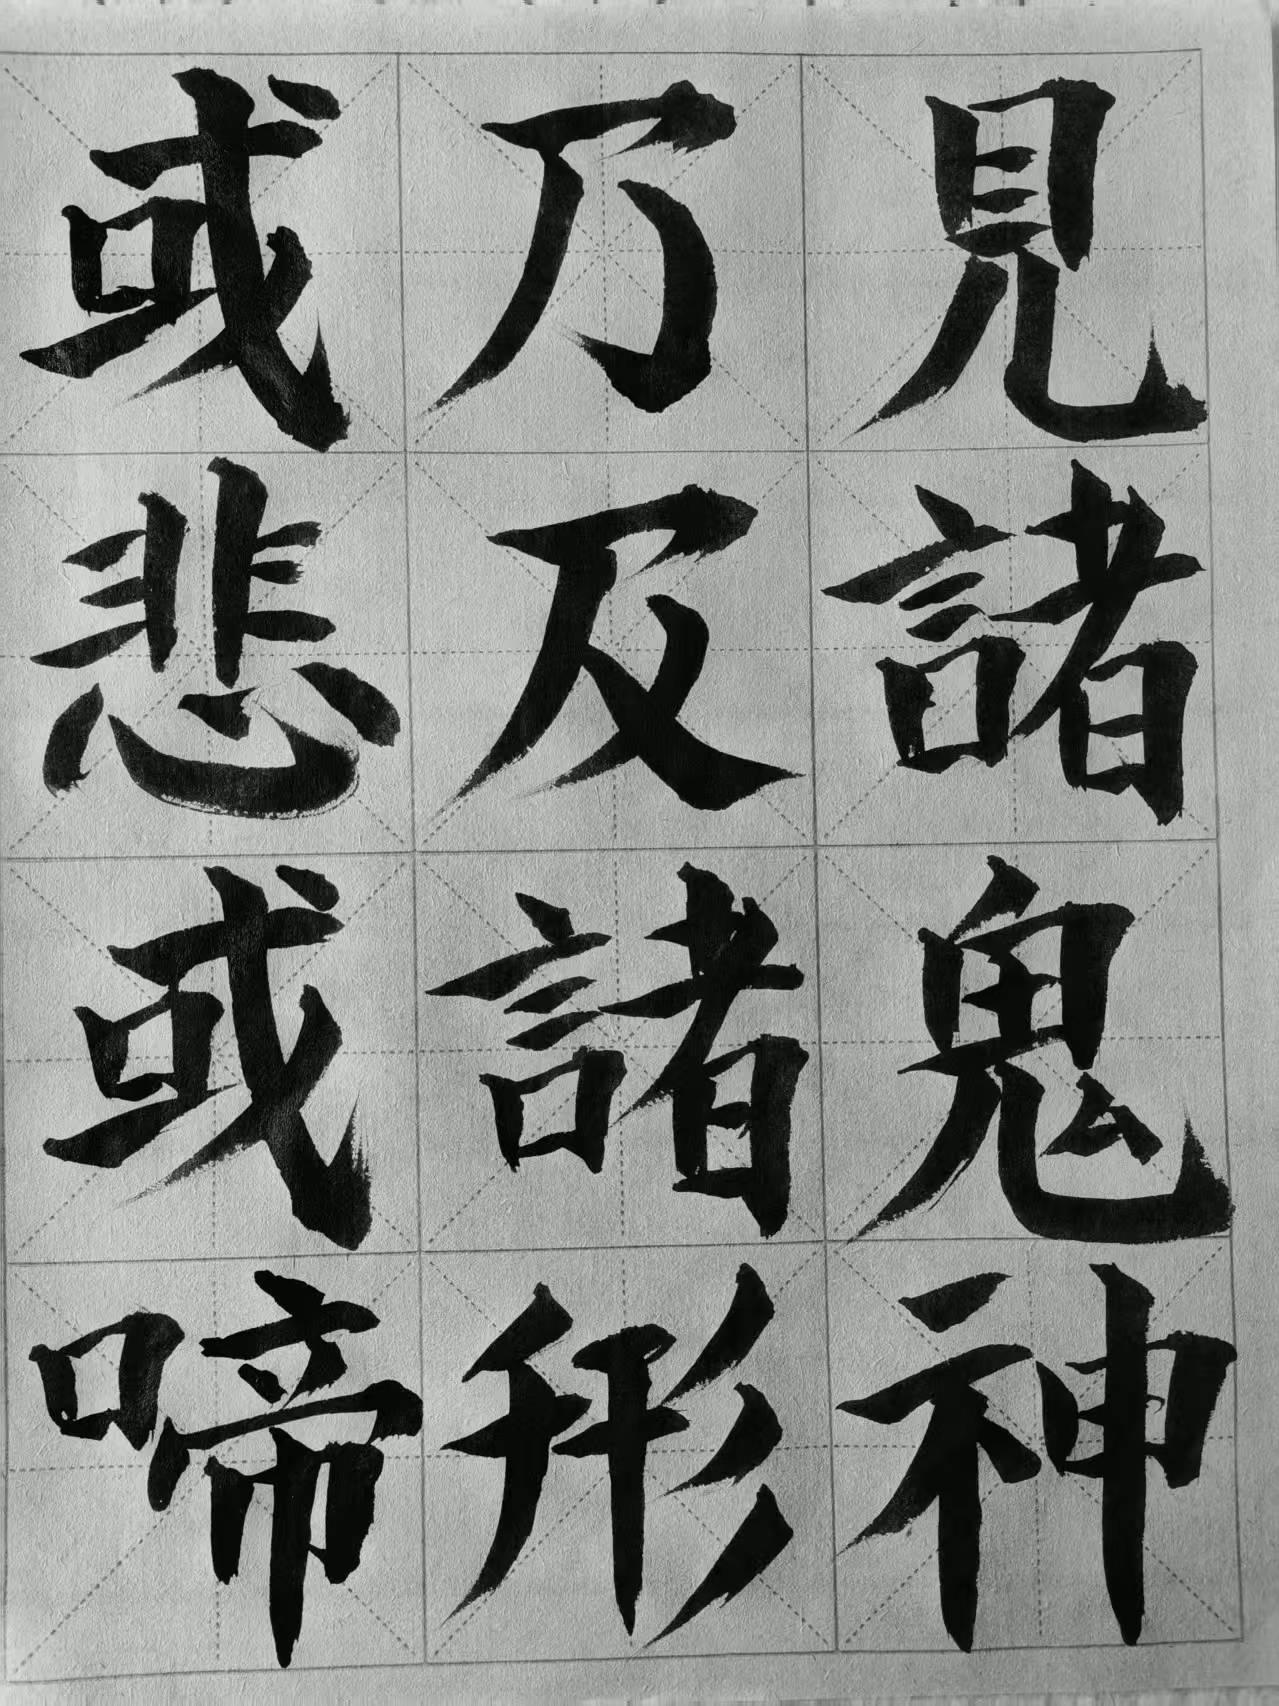 見諸鬼神
乃及諸形
或悲或啼